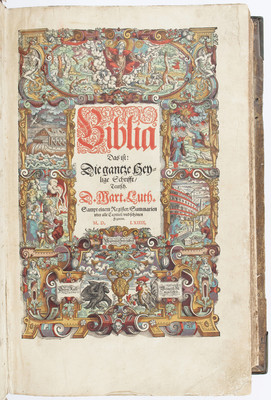 Biblia
Das ist:
Die gantze Hey-
lige Schrifft/
Teutsch.
D. Mart. Luth.
Sampt einem Register/ Summarien
uber alle Capitel/ und schönen
Figuren.
M. D. LXIIII.